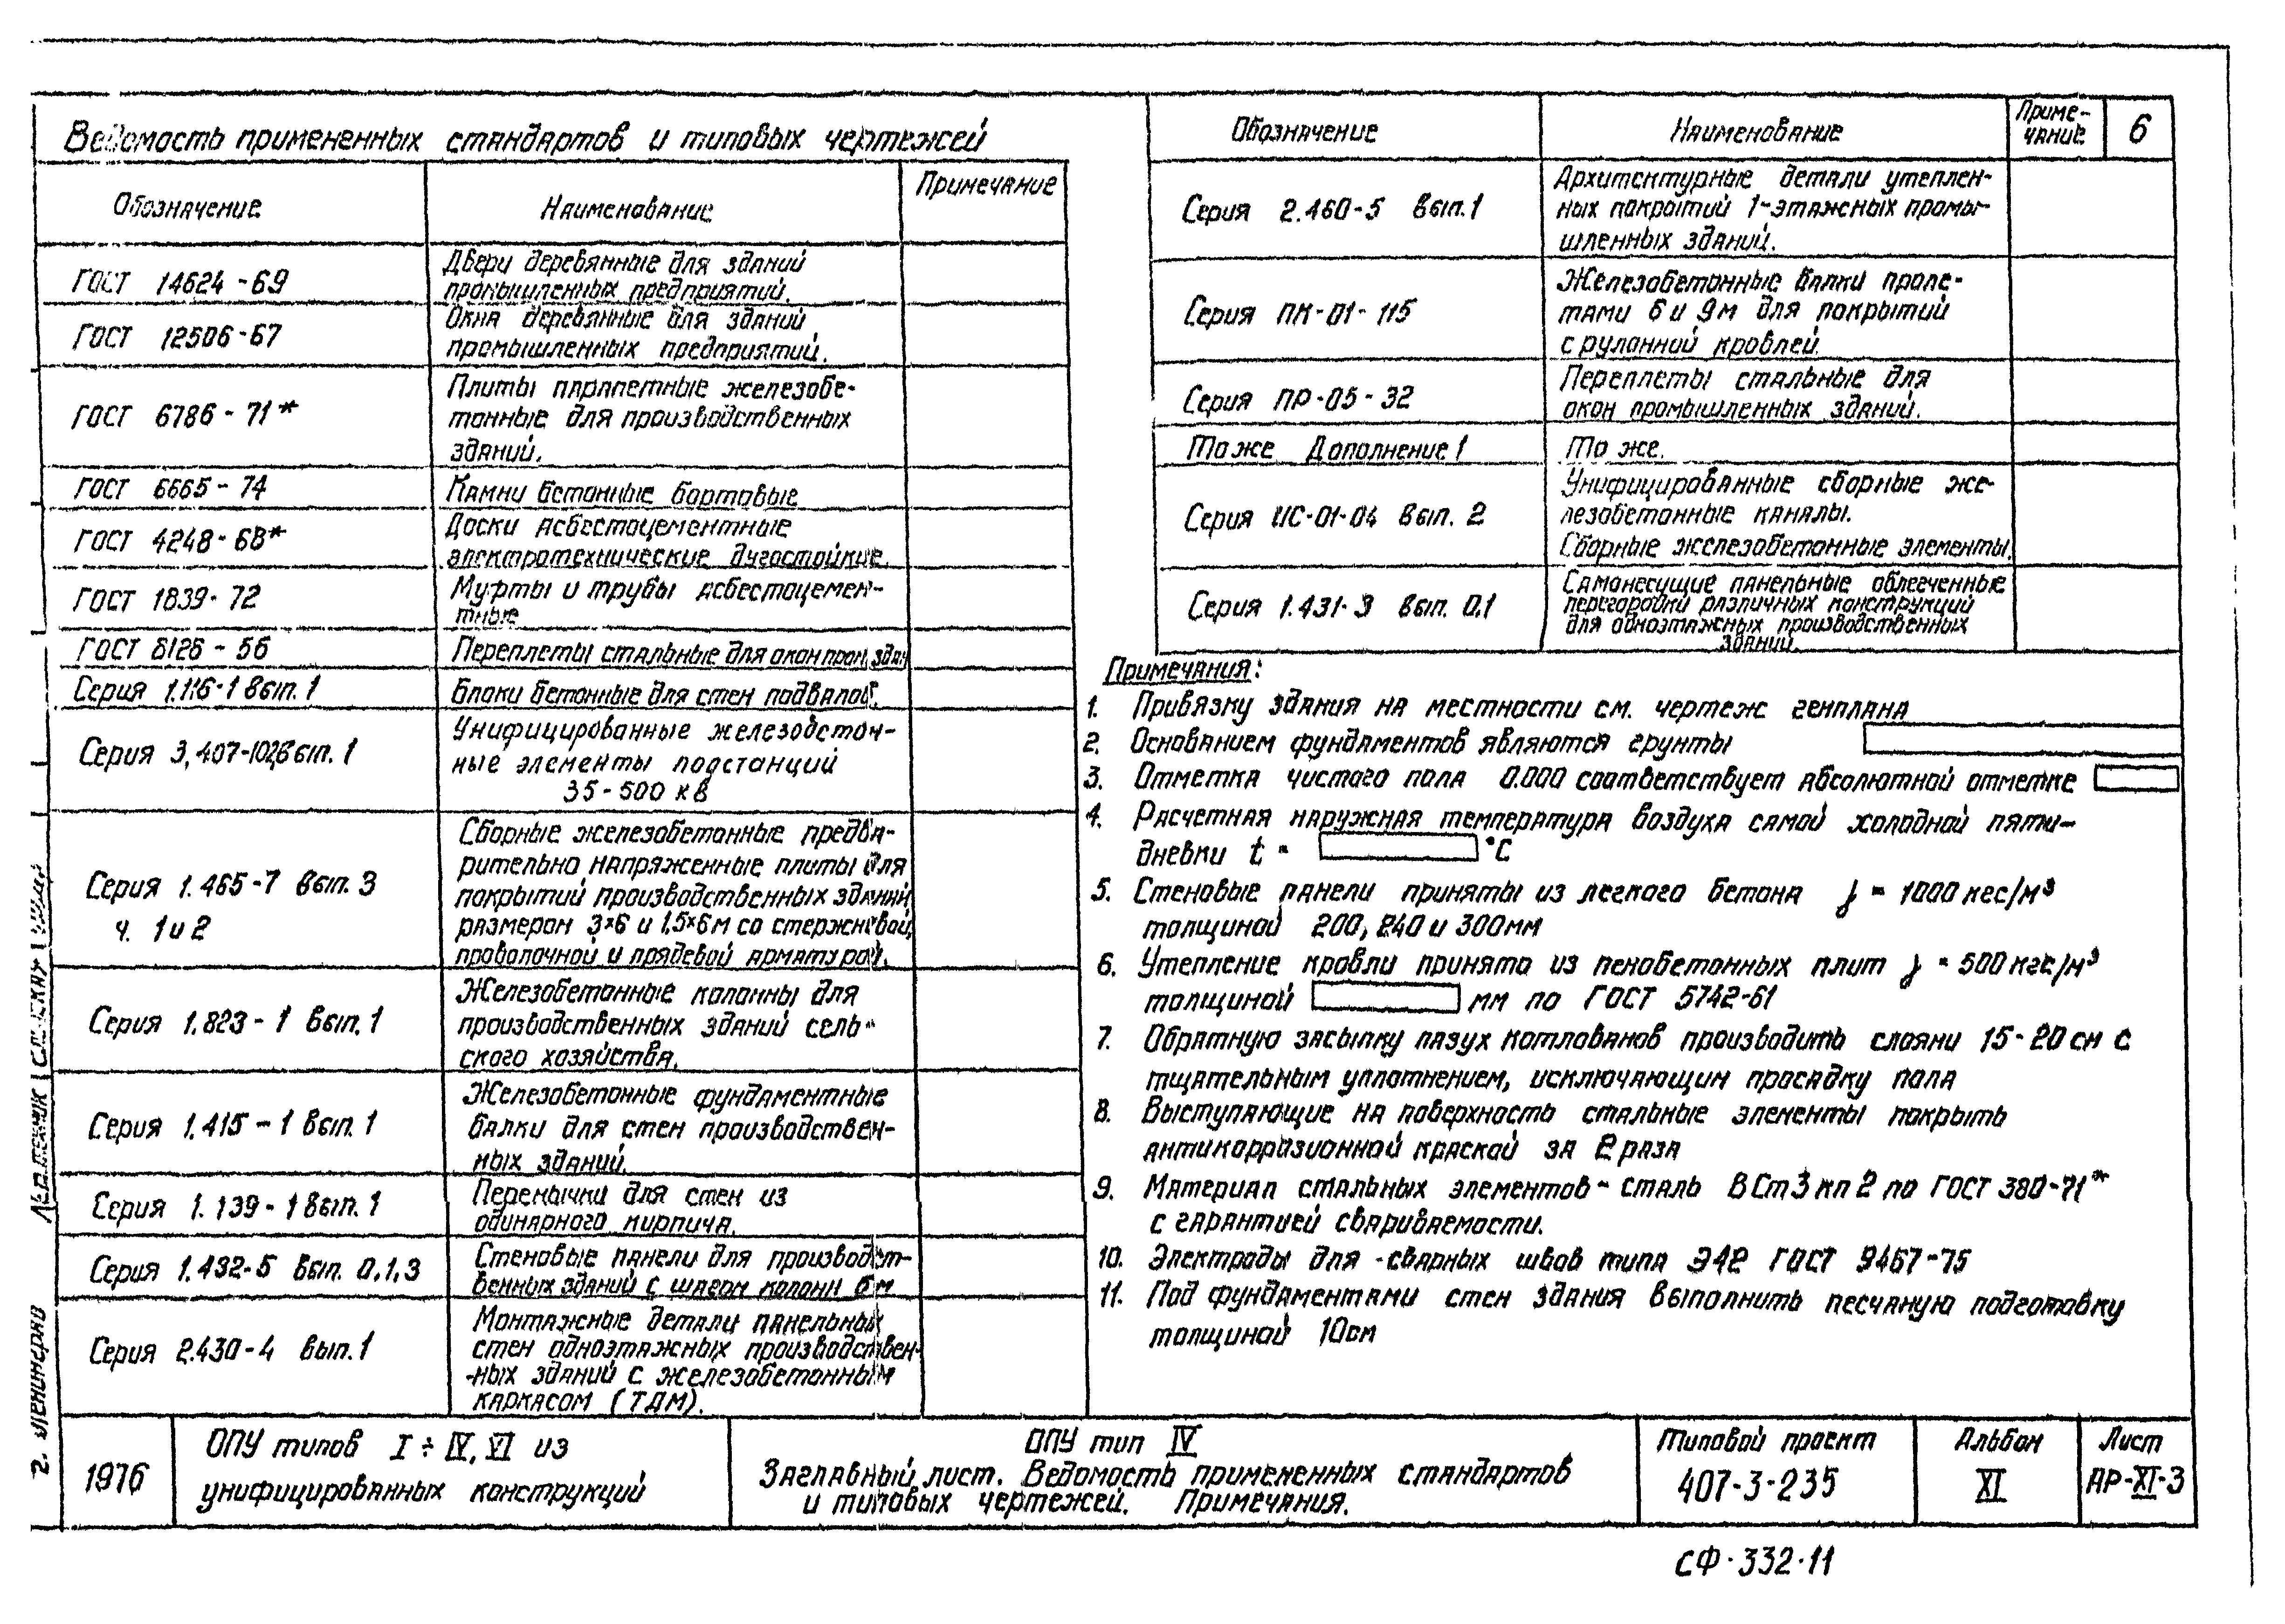 Ведомость примененных стандартов и типовых чертежей
Обозначение Наименование Примечание
ГОСТ 14624-69 Двери деревянные для зданий
промышленных предприятий.
ГОСТ 12506-67 Окна деревянные для зданий
промышленных предприятий.
ГОСТ 6786-71* Плиты парапетные железобе-
тонные для производственных
зданий.
ГОСТ 6665-74 Камни бетонные бортовые
ГОСТ 4248-68* Доски асбестоцементные
электротехнические дугостойкие.
ГОСТ 1839-72 Муфты и трубы асбестоцемен-
тные
ГОСТ 8126-56 Переплеты стальные для окон пром. здан
Серия 1.116-1 вып. 1 Блоки бетонные для стен подвалов.
Серия 3.407-102 вып. 1 Унифицированные железобетон-
ные элементы подстанций
35-500 кВ
Серия 1.465-7 вып. 3
ч. 1 и 2
Сборные железобетонные предва-
рительно напряженные плиты для
покрытий производственных зданий
размером 3×6 и 1.5×6м со стержневой,
проволочной и прядевой арматурой.
Серия 1.823-1 вып. 1 Железобетонные колонны для
производственных зданий сель-
ского хозяйства.
Серия 1.415-1 вып. 1 Железобетонные фундаментные
балки для стен производствен-
ных зданий.
Серия 1.139-1 вып. 1 Перемычки для стен из
одинарного кирпича.
Серия 1.432-5 вып. 0,1,3 Стеновые панели для производст-
венных зданий с шагом колонн 6м
Серия 2.430-4 вып. 1 Монтажные детали панельных
стен одноэтажных производствен-
-ных зданий с железобетонным
каркасом (ТДМ).
Обозначение Наименование Приме-
чание 6
Серия 2.460-5 вып. 1 Архитектурные детали утеплен-
ных покрытий 1-этажных промы-
шленных зданий.
Серия ПК-01-115 Железобетонные балки проле-
тами 6 и 9м для покрытий
с рулонной кровлей.
Серия ПР-05-32 Переплеты стальные для
окон промышленных зданий.
То же Дополнение 1 То же.
Серия ИС-01-04 вып. 2 Унифицированные сборные же-
лезобетонные каналы.
Сборные железобетонные элементы.
Серия 1.431-3 вып. 0,1 Самонесущие панельные облегченные
перегородки различных конструкций
для одноэтажных производственных
зданий.
Примечания:
1. Привязку здания на местности см. чертеж генплана
2. Основанием фундаментов являются грунты
3. Отметка чистого пола 0.000 соответствует абсолютной отметке
4. Расчетная наружная температура воздуха самой холодной пяти-
дневки t = °С
5. Стеновые панели приняты из легкого бетона γ = 1000 кгс/м³
толщиной 200, 240 и 300мм
6. Утепление кровли принято из пенобетонных плит γ = 500 кгс/м³
толщиной мм по ГОСТ 5742-61
7. Обратную засыпку пазух котлованов производить слоями 15-20 см с
тщательным уплотнением, исключающим просадку пола
8. Выступающие на поверхность стальные элементы покрыть
антикоррозионной краской за 2 раза
9. Материал стальных элементов - сталь ВСт3кп2 по ГОСТ 380-71*
с гарантией свариваемости.
10. Электроды для сварных швов типа Э42 ГОСТ 9467-75
11. Под фундаментами стен здания выполнить песчаную подготовку
толщиной 10см
1976
ОПУ типов I÷IV, VI из
унифицированных конструкций
ОПУ тип IV
Заглавный лист. Ведомость примененных стандартов
и типовых чертежей. Примечания.
Типовой проект
407-3-235
Альбом
XI
Лист
АР-XI-3
СФ-332-11